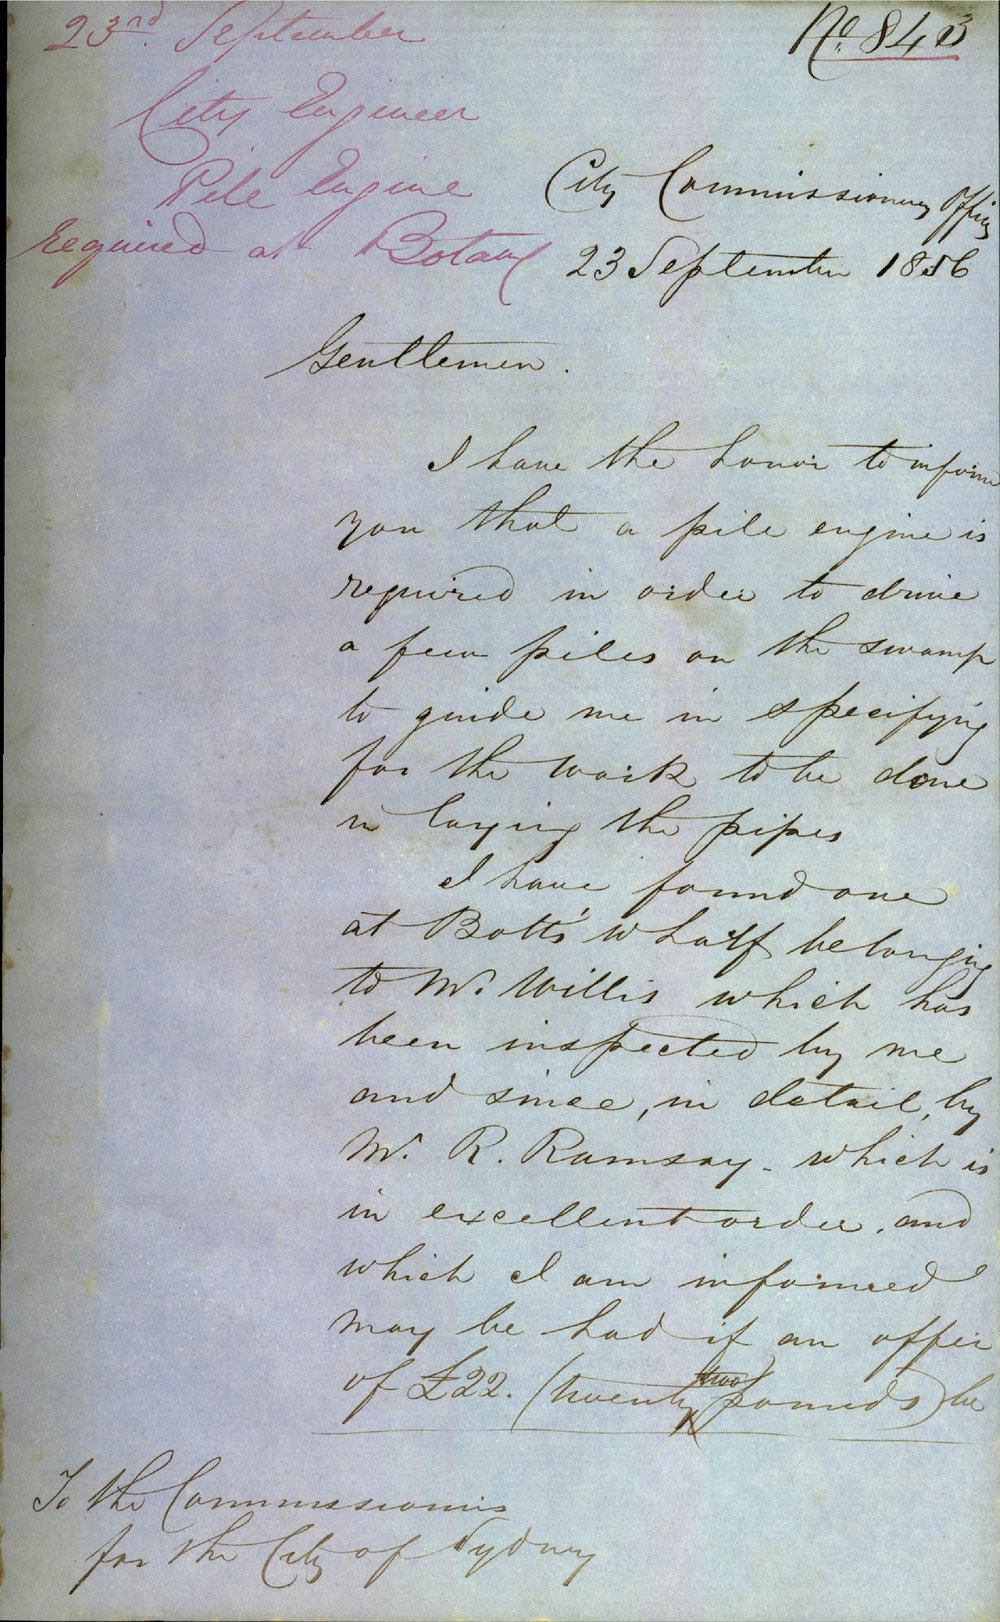 23rd September
No 843
City Engineer
Pile Engine
required at Botany
City Commissioners Office
23 September 1856
Gentlemen.
I have the honor to inform
you that a pile engine is
required in order to drive
a few piles on the swamp
to guide me in specifying
for the work to be done
in laying the pipes
I have found one
at Botts' wharf belonging
to Mr. Willis which has
been inspected by me
and since, in detail, by
Mr. R. Ramsay - which is
in excellent order, and
which I am informed
may be had if an offer
of £22. (twenty two pounds) be
To the Commissioners
for the City of Sydney